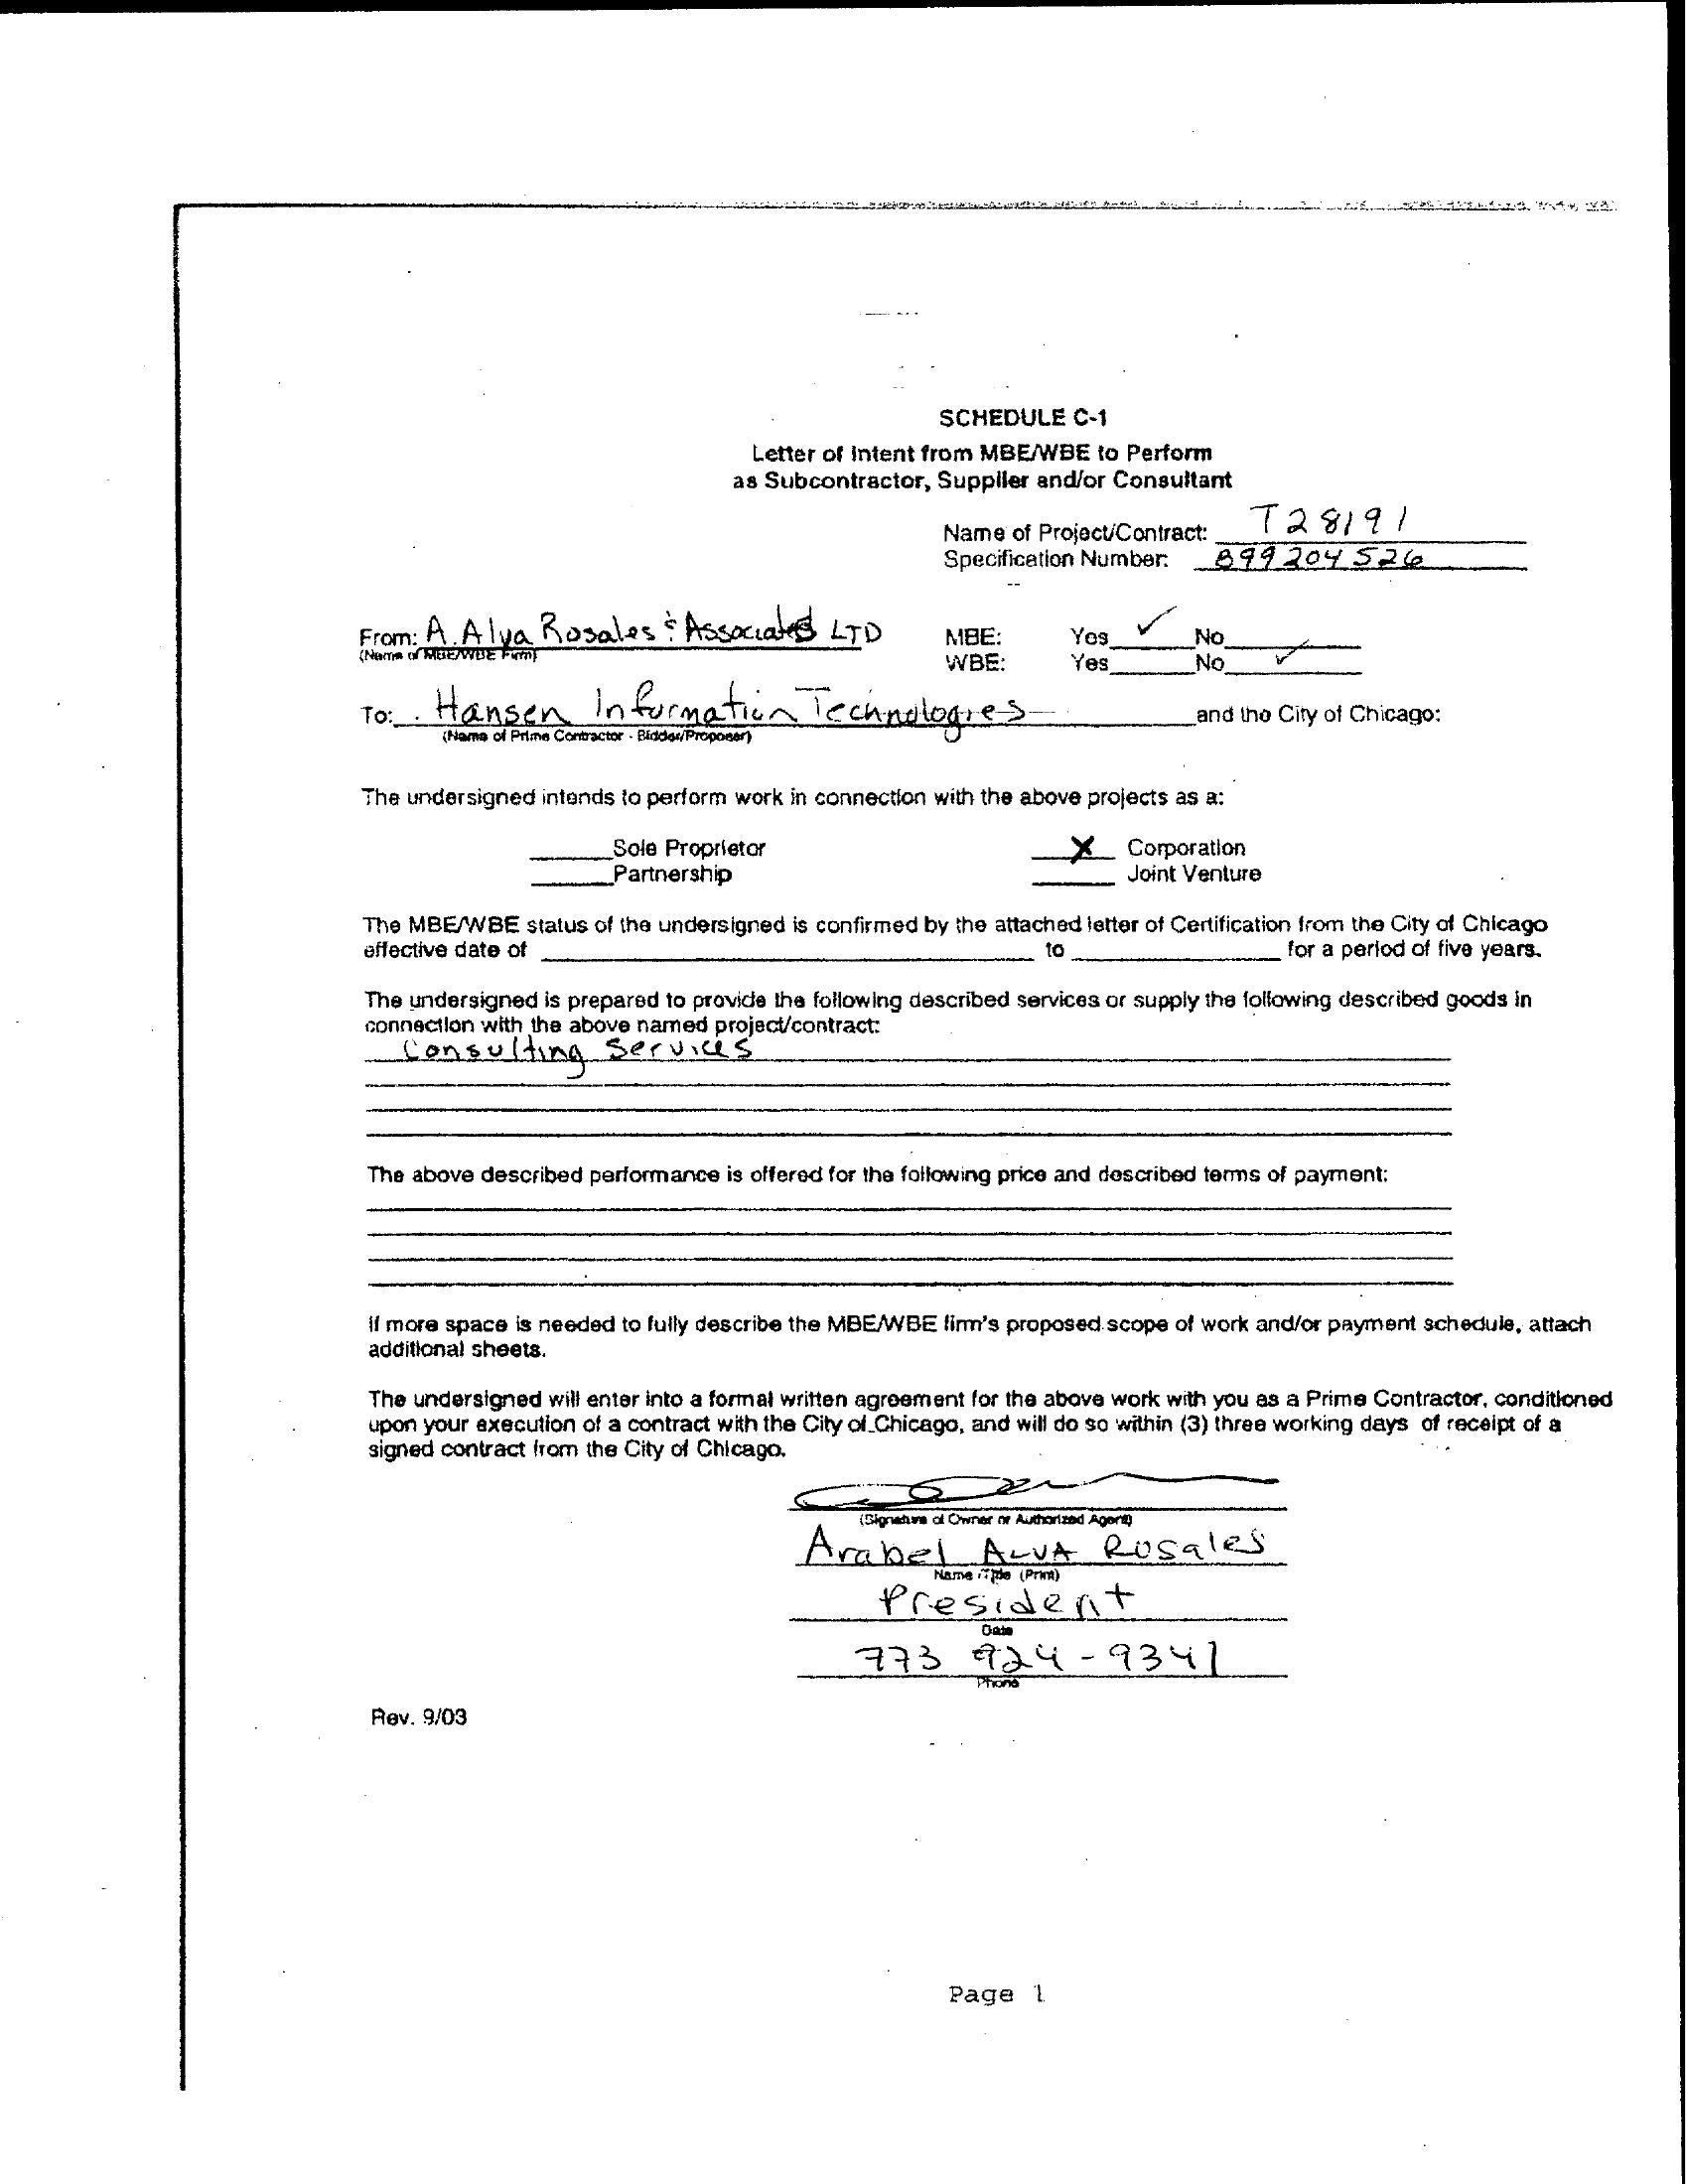 SCHEDULE C-1
Letter of Intent from MBE/WBE to Perform
as Subcontractor, Supplier and/or Consultant
Name of Project/Contract: T28191
Specification Number: B99204526
From: A. Alva Rosales & Associates LTD MBE: Yes ✓ No
(Name of MBE/WBE Firm) WBE: Yes No ✓
To: Hansen Information Technologies and the City of Chicago:
(Name of Prime Contractor - Bidder/Proposer)
The undersigned intends to perform work in connection with the above projects as a:
Sole Proprietor X Corporation
Partnership Joint Venture
The MBE/WBE status of the undersigned is confirmed by the attached letter of Certification from the City of Chicago
effective date of to for a period of five years.
The undersigned is prepared to provide the following described services or supply the following described goods in
connection with the above named project/contract:
Consulting Services
The above described performance is offered for the following price and described terms of payment:
If more space is needed to fully describe the MBE/WBE firm's proposed scope of work and/or payment schedule, attach
additional sheets.
The undersigned will enter into a formal written agreement for the above work with you as a Prime Contractor, conditioned
upon your execution of a contract with the City of Chicago, and will do so within (3) three working days of receipt of a
signed contract from the City of Chicago.
(Signature of Owner or Authorized Agent)
Arabel ALVA Rosales
Name /Title (Print)
President
Date
773 924-9341
Phone
Rev. 9/03
Page 1